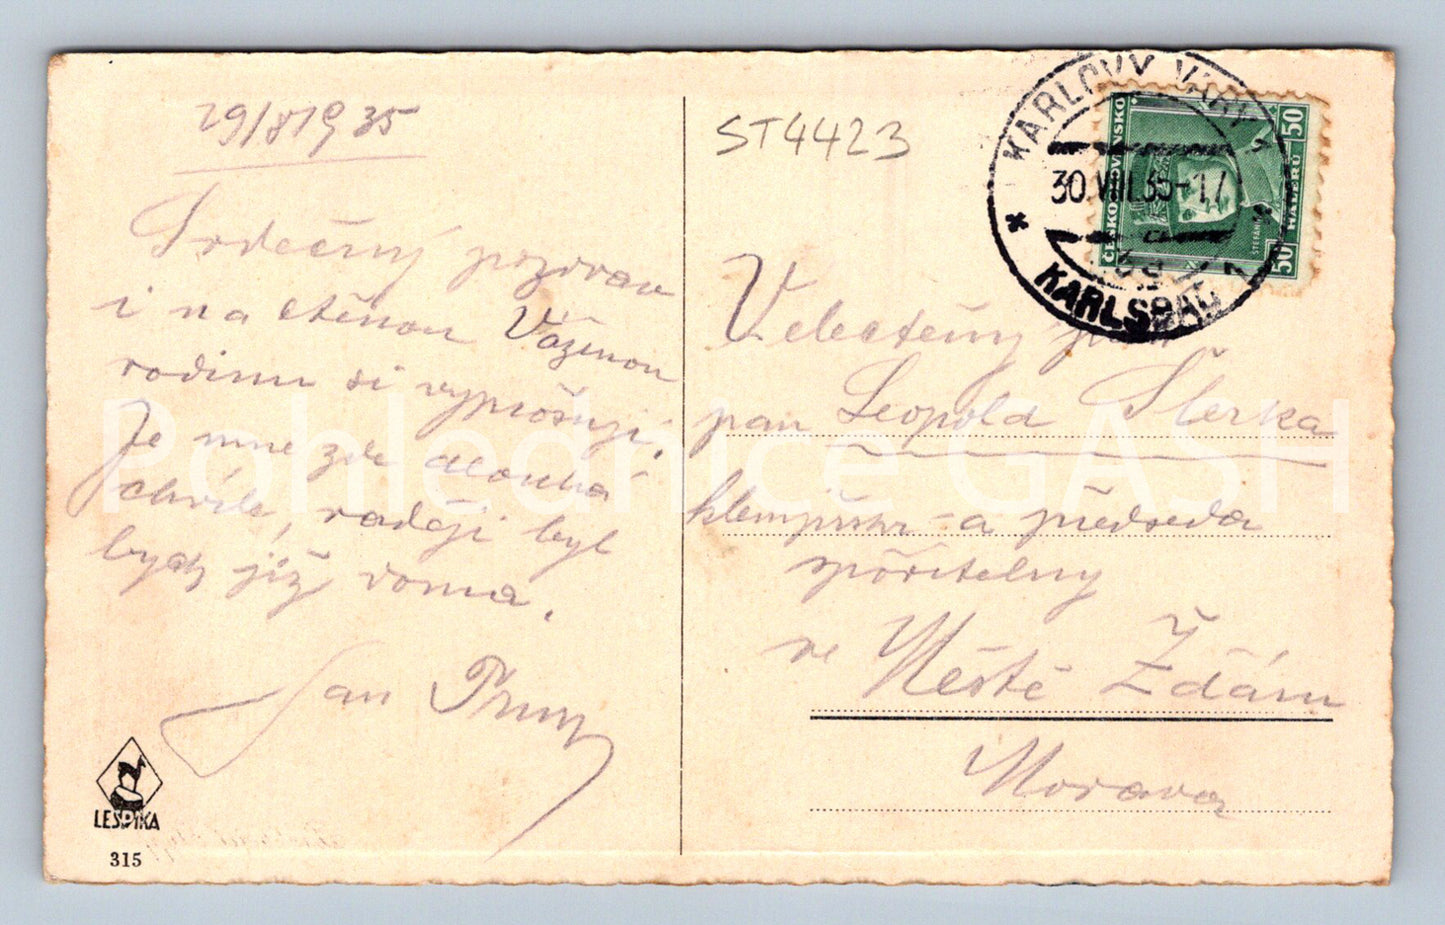 29/8 1935
Srdečný pozdrav
i na ctěnou Váženou
rodinu si vyprošuji.
Je mne zde dlouhá
chvíle, raději byl
bych již doma.
Jan
LESPIKA
315
ST4423
KARLOVY VARY
30.VIII.35-17
KARLSBAD 1
ČESKOSLOVENSKO
ŠTEFÁNIK
50 HALÉŘŮ 50
Velectěný pán
pan Leopold Šterka
klempíř a předseda
spořitelny
ve Městě Žďáru
Morava
Pohlednice GASH